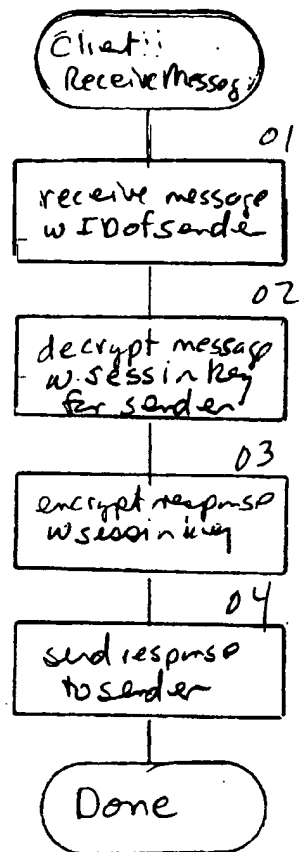 Client::
ReceiveMessag
01
receive message
w ID of sender
02
decrypt message
w. sessin key
for sender
03
encrypt response
w sessin key
04
send response
to sender
Done